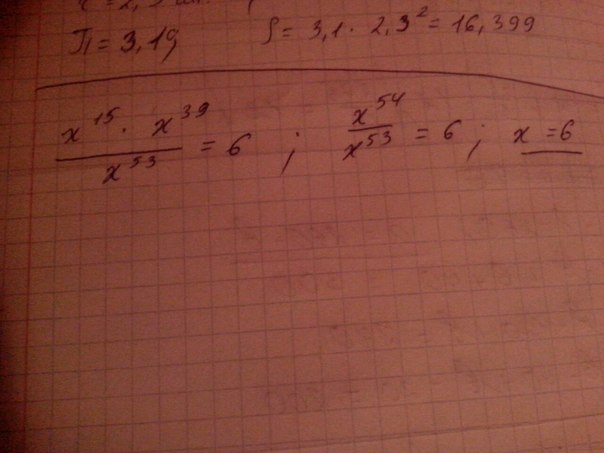 π = 3,1; S = 3,1 · 2,3² = 16,399
(x¹⁵ · x³⁹)/x⁵³ = 6 ; x⁵⁴/x⁵³ = 6 ; x = 6